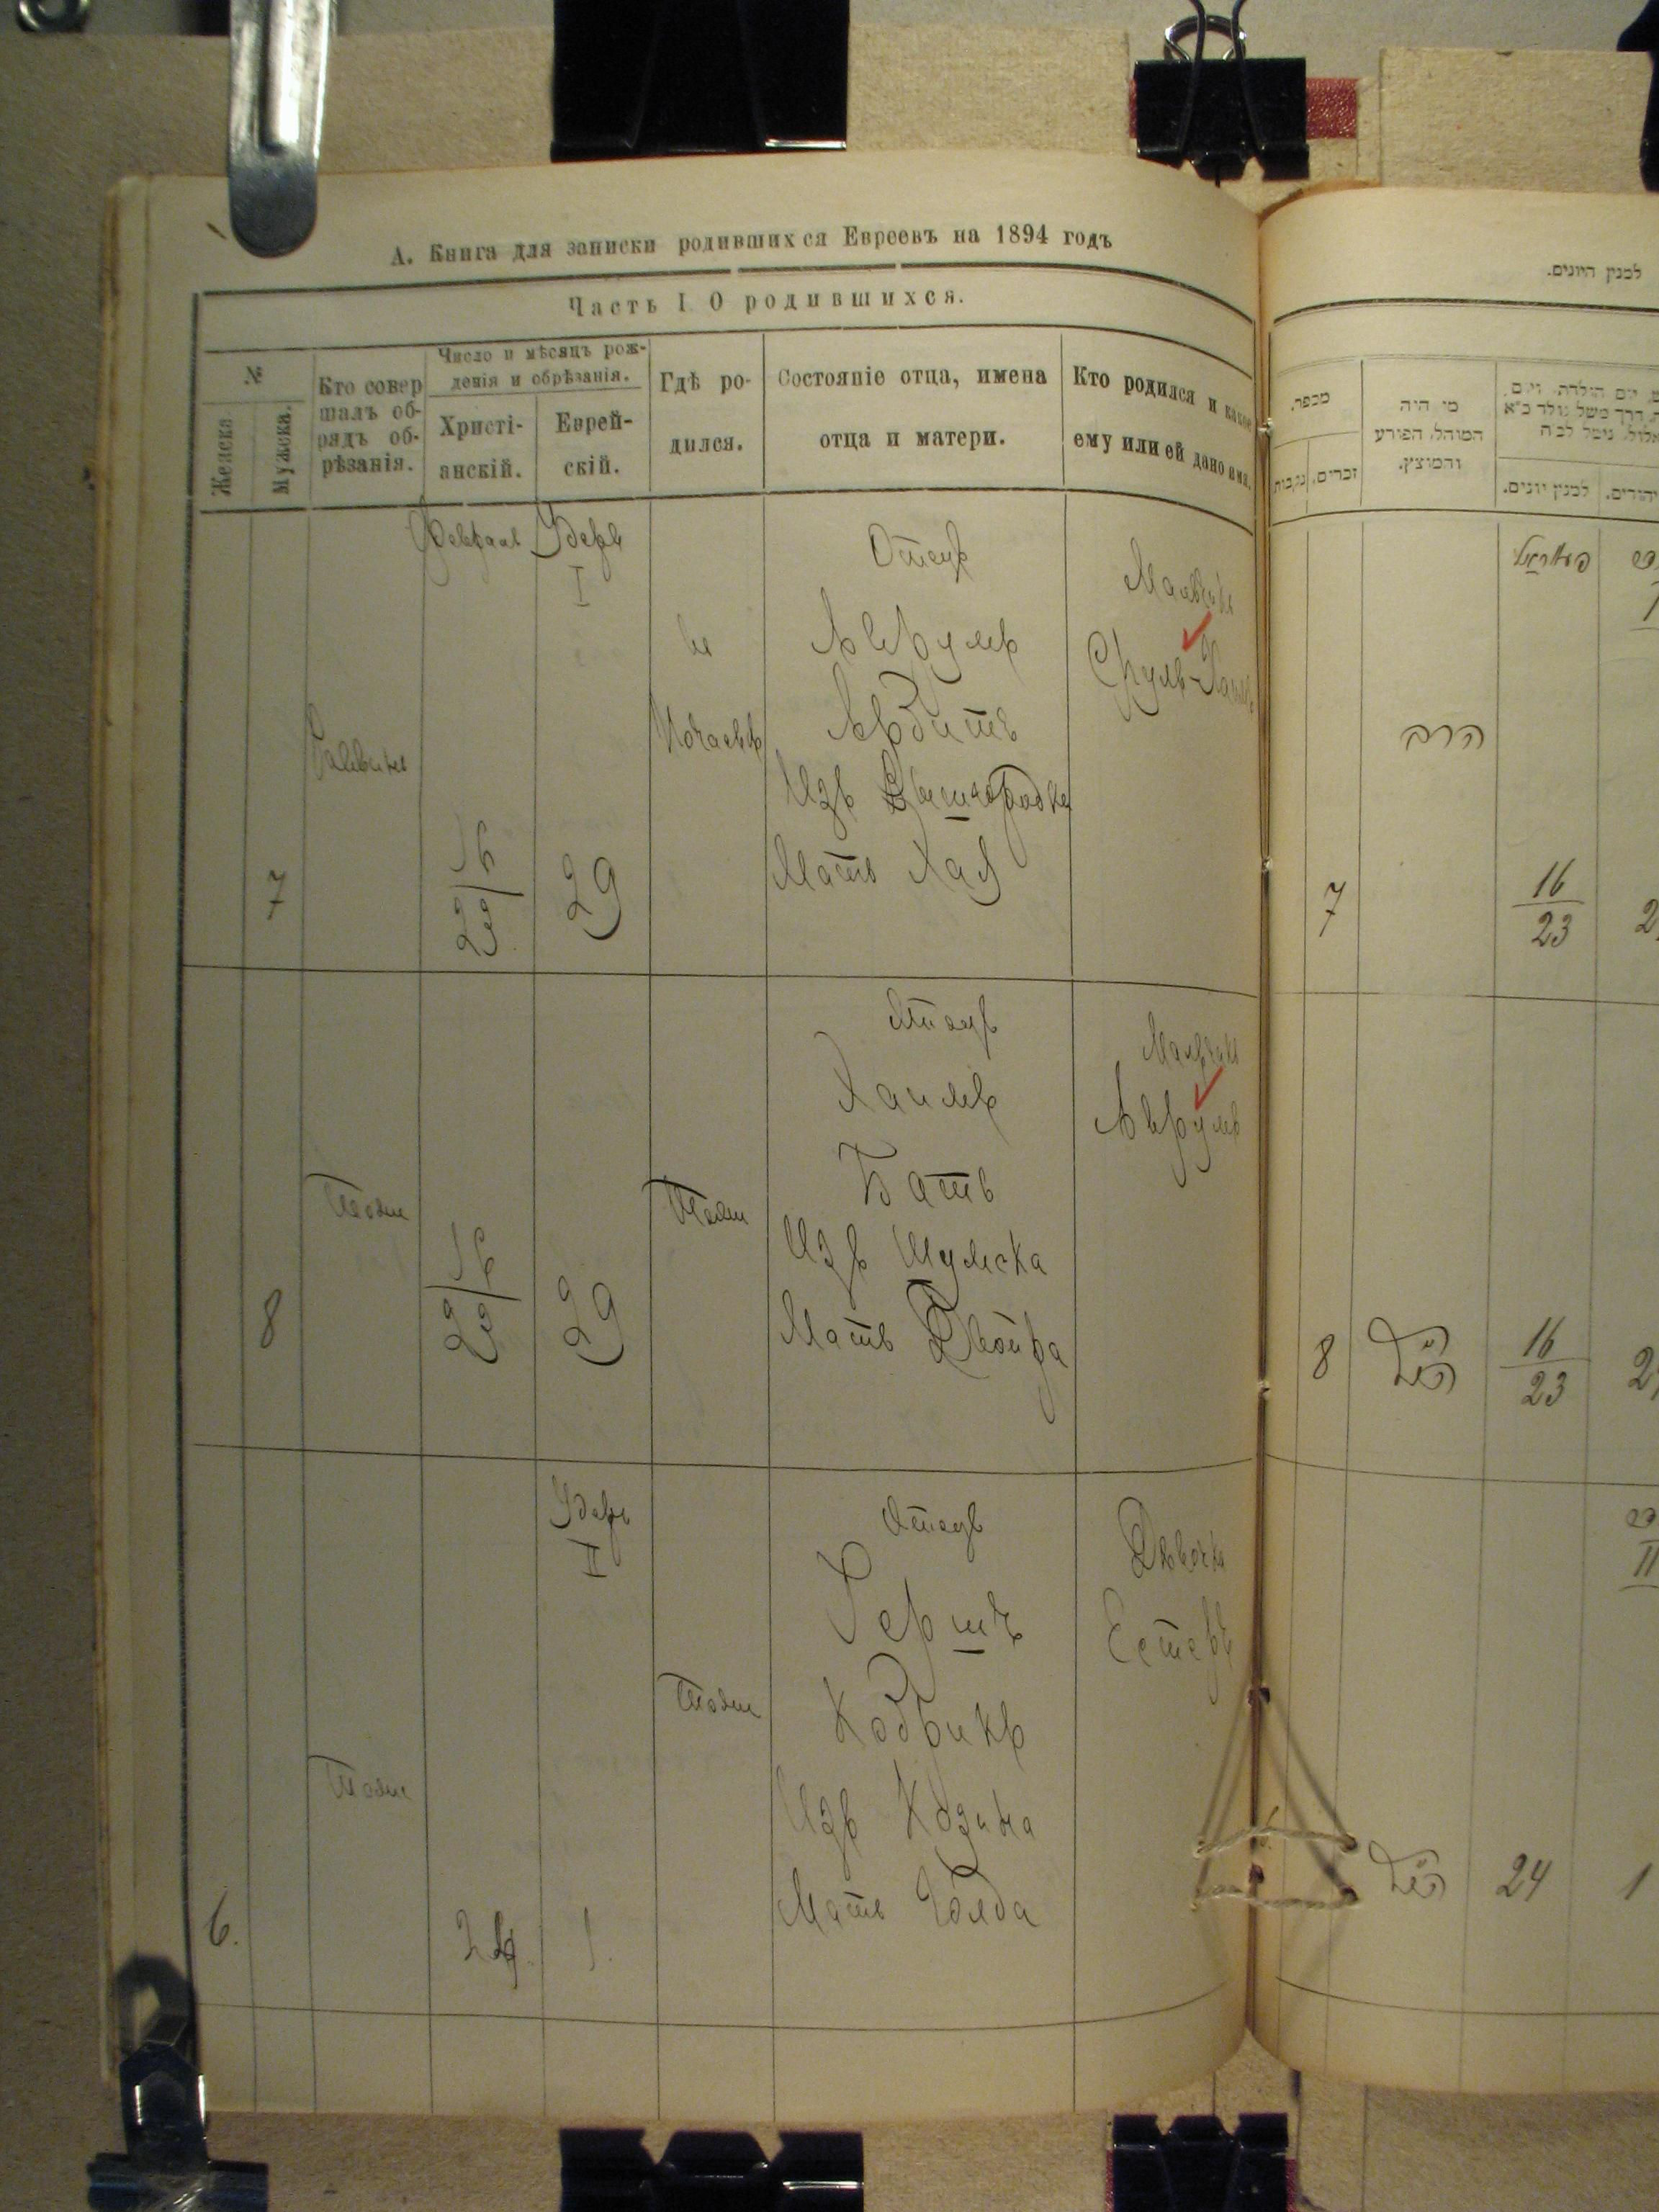 А. Книга для записки родившихся Евреевъ на 1894 годъ
Часть I О родившихся.
№
Женска
Мужска.
Кто совер
шалъ об-
рядъ об-
рѣзанія.
Число и мѣсяцъ рож-
денія и обрѣзанія.
Христі-
анскій.
Еврей-
скій.
Гдѣ ро-
дился.
Состояніе отца, имена
отца и матери.
Кто родился и какое
ему или ей дано имя.
7
Раввинъ
Февраль
16
23
Адеръ
I
29
в м
Почаевѣ
Отецъ
Аврумъ
Изъ Вышгородка
Мать Хая
Мальчикъ
Сруль-Хаимъ
8
Тоже
16
23
29
Тоже
Отецъ
Хаимъ
Бать
Изъ Шумска
Мать Двойра
Мальчикъ
Аврумъ
6.
Тоже
24
Адеръ
II
1.
Тоже
Отецъ
Гершъ
Изъ Козина
Мать Голда
Дѣвочка
Естеръ
למנין היונים.
מספר.
נקבות
זכרים.
מי היה
המוהל, הפורע
והמוצץ.
למנין יונים.
פעווראל
7
הרב
16
23
8
הנ״ל
16
23
II
הנ״ל
24
1